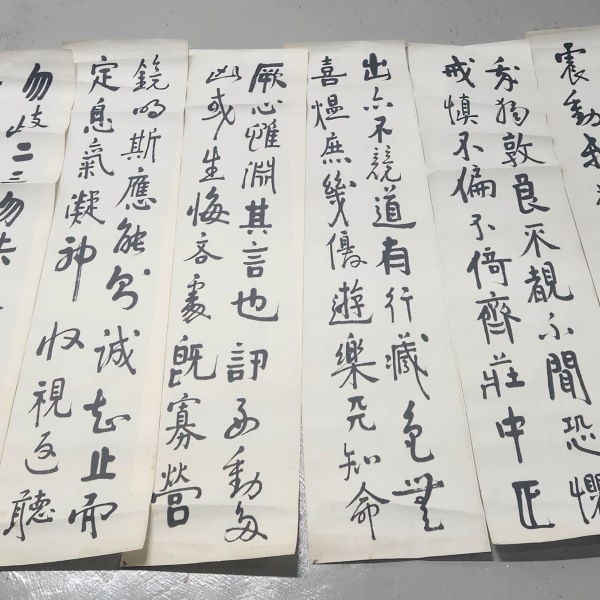 震動
我獨敦艮不覩不聞恐懼
戒慎不偏不倚齊莊中正
出亦不競道有行藏色無
喜慍庶幾優遊樂天知命
厥心惟淵其言也訒動多
凶或生悔吝處既寡營
鏡明斯應能誠知止而
定息氣凝神收視返聽
勿歧二三勿失